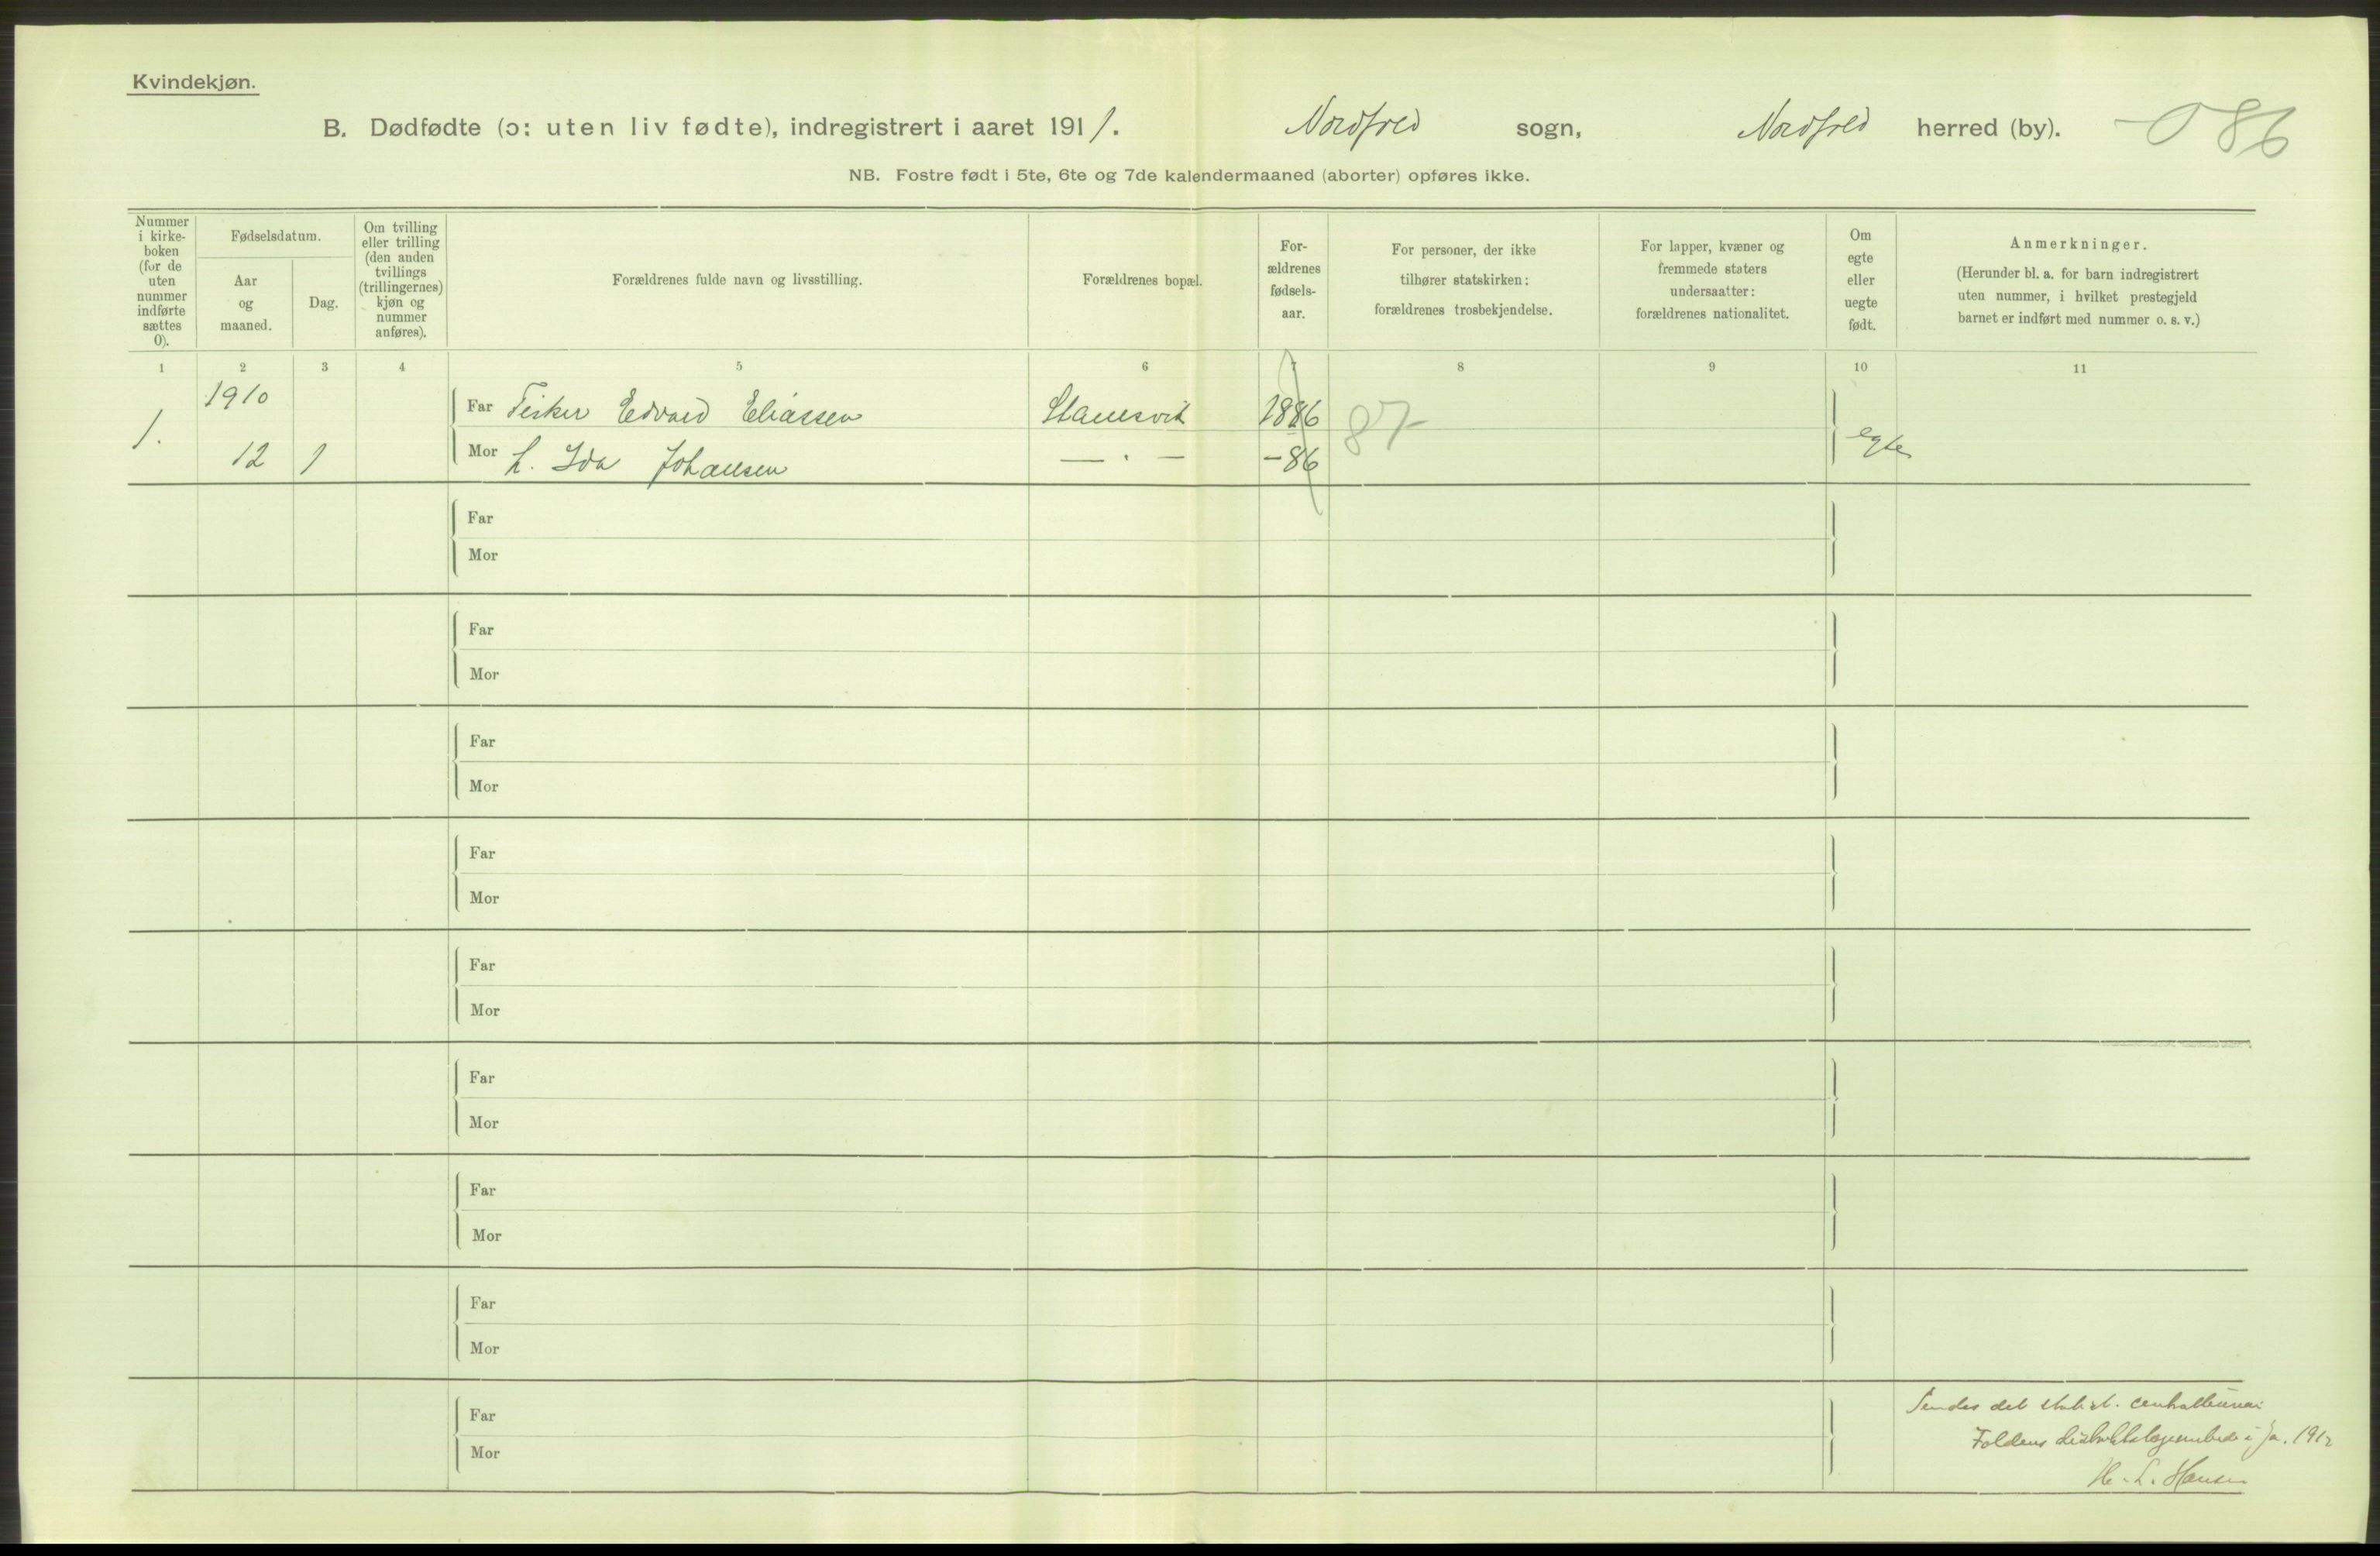 Kvindekjøn.
B. Dødfødte (ɔ: uten liv fødte), indregistrert i aaret 1911. Nordfold sogn, Nordfold herred (by). 086
NB. Fostre født i 5te, 6te og 7de kalendermaaned (aborter) opføres ikke.
Nummer
i kirke-
boken
(for de
uten
nummer
indførte
sættes
0).
Fødselsdatum.
Aar
og
maaned.
Dag.
Om tvilling
eller trilling
(den anden
tvillings
(trillingernes)
kjøn og
nummer
anføres).
Forældrenes fulde navn og livsstilling.
Forældrenes bopæl.
For-
ældrenes
fødsels-
aar.
For personer, der ikke
tilhører statskirken:
forældrenes trosbekjendelse.
For lapper, kvæner og
fremmede staters
undersaatter:
forældrenes nationalitet.
Om
egte
eller
uegte
født.
Anmerkninger.
(Herunder bl. a. for barn indregistrert
uten nummer, i hvilket prestegjeld
barnet er indført med nummer o. s. v.)
1 2 3 4 5 6 7 8 9 10 11
1910
Far Fisker Edvard Eliassen 1886 87
1.
12 1 Mor h. Ida Johansen — " — - 86 egte
Far
Mor
Far
Mor
Far
Mor
Far
Mor
Far
Mor
Far
Mor
Far
Mor
Far
Mor
Far
Mor
Sendes det statist. centralbureau
Foldens distriktslægeembede i Ja. 1912
H. L. Hansen